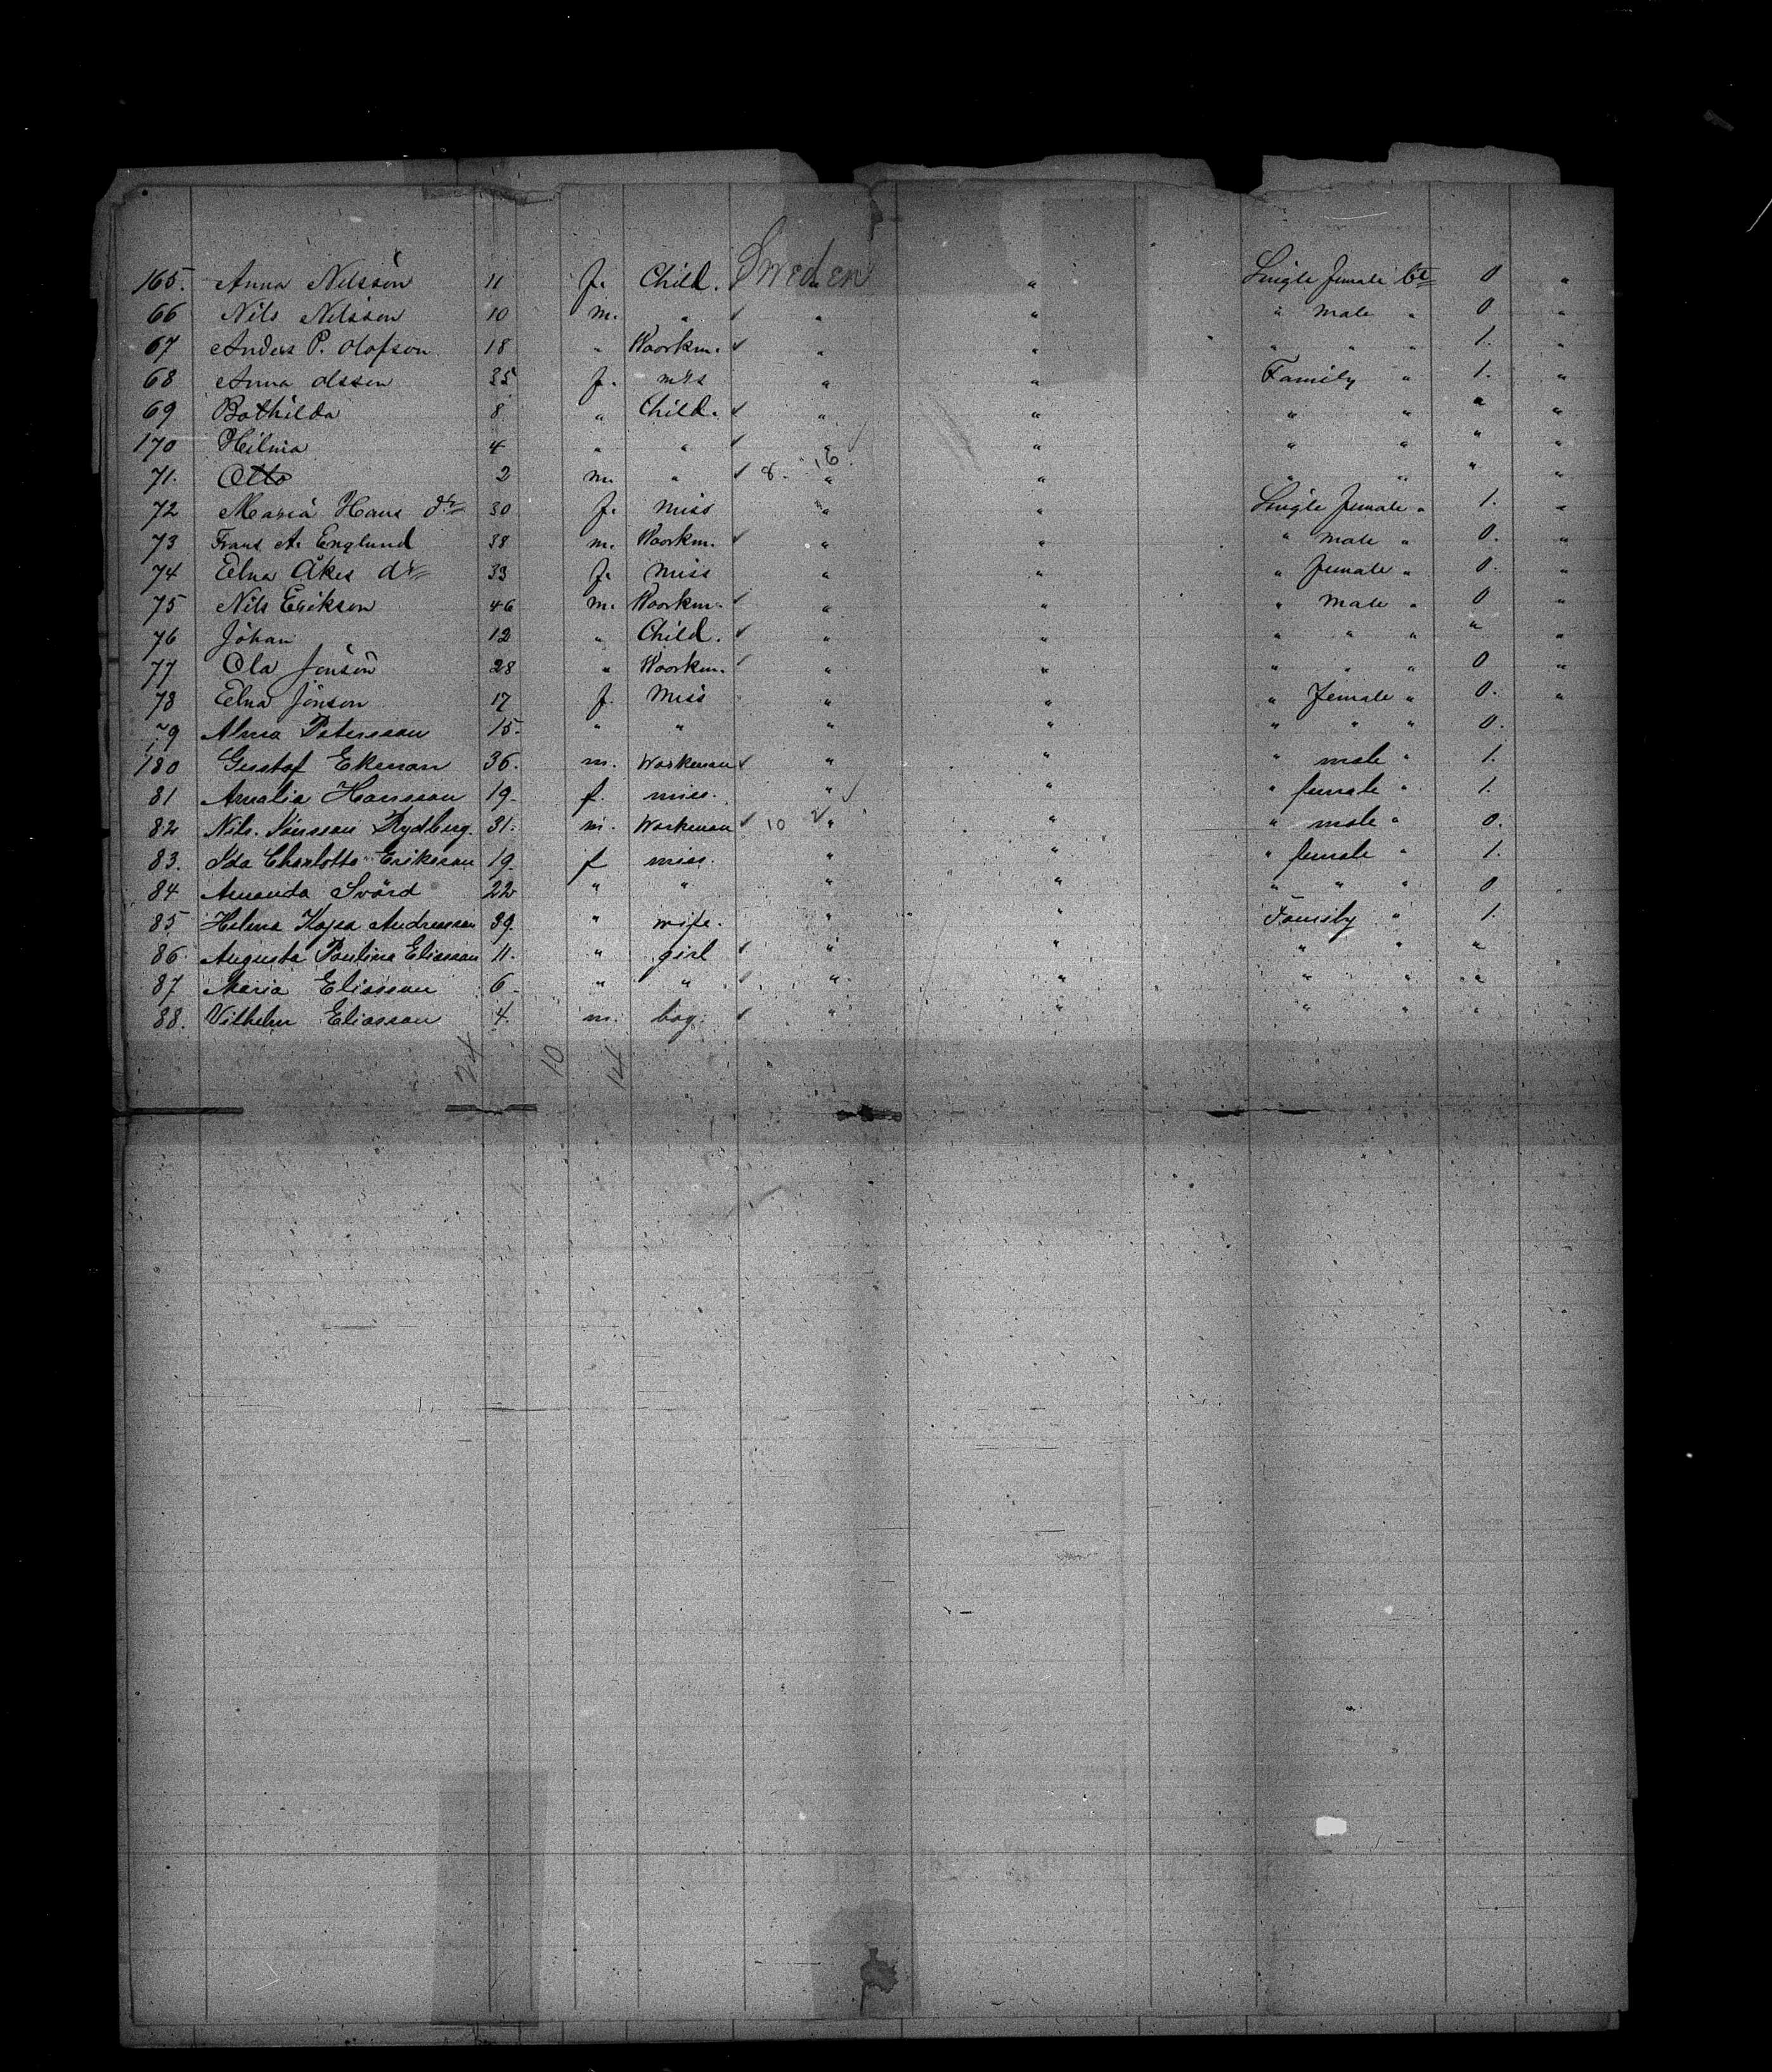 Sweden
165. Anna Nilsson 11 f. Child. " " Single female Ct 0 "
66 Nils Nilsson 10 m. " " " " male " 0 "
67 Anders P. Olofson 18 " Woorkm. " " " " " 1. "
68 Anna Olsson 35 f. mrs " " Family " 1. "
69 Bothilda 8 " Child. " " " " " "
170 Hilma 4 " " " " " " " "
71. Otto 2 m. " 8. 16. " " " " " "
72 Maria Hans dr 30 f. miss " " Single female " 1. "
73 Frans A. Englund 38 m. Woorkm. " " " male " 0. "
74 Elna Åkes dr 33 f. Miss " " " female " 0. "
75 Nils Erikson 46 m. Woorkm. " " " male " 0 "
76 Johan 12 " Child. " " " " " " "
77 Ola Jönson 28 " Woorkm. " " " " " 0 "
78 Elna Jönson 17 f. Miss " " " Female " 0. "
79 Alma Petersson 15. " " " " " " " 0.
180 Gustaf Ekman 36. m. Workman " " " male " 1.
81 Amalia Hansson 19. f. miss. " " " female " 1.
82 Nils Jönsson Rydberg. 31. m. Workman 10 2 " " " male " 0.
83. Ida Charlotta Eriksson 19. f miss. " " " female " 1.
84 Amanda Svärd 22 " " " " " " " 0
85 Helena Kajsa Andreasson 39. " wife. " " Family " 1.
86. Augusta Paulina Eliasson 11. " girl " " " " "
87 Maria Eliasson 6. " " " " " " "
88. Vilhelm Eliasson 4. m. boy. " " " " "
24 10 14